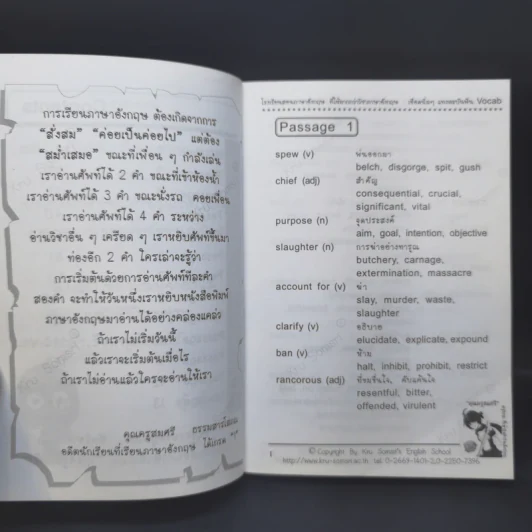 การเรียนภาษาอังกฤษ ต้องเกิดจากการ
"สั่งสม" "ค่อยเป็นค่อยไป" แต่ต้อง
"สม่ำเสมอ" ขณะที่เพื่อน ๆ กำลังเล่น
เราอ่านศัพท์ได้ 2 คำ ขณะที่เข้าห้องน้ำ
เราอ่านศัพท์ได้ 3 คำ ขณะนั่งรถ คอยเพื่อน
เราอ่านศัพท์ได้ 4 คำ ระหว่าง
อ่านวิชาอื่น ๆ เครียด ๆ เราหยิบศัพท์ขึ้นมา
ท่องอีก 2 คำ ใครเล่าจะรู้ว่า
การเริ่มต้นด้วยการอ่านศัพท์ทีละคำ
สองคำ จะทำให้วันหนึ่งเราหยิบหนังสือพิมพ์
ภาษาอังกฤษมาอ่านได้อย่างคล่องแคล่ว
ถ้าเราไม่เริ่มวันนี้
แล้วเราจะเริ่มต้นเมื่อไร
ถ้าเราไม่อ่านแล้วใครจะอ่านให้เรา
คุณครูสมศรี
อดีตนักเรียนที่เรียนภาษาอังกฤษ ได้เกรด
Vocab
Passage 1
spew (v) พ่นออกมา
belch, disgorge, spit, gush
chief (adj) สำคัญ
consequential, crucial,
significant, vital
purpose (n) จุดประสงค์
aim, goal, intention, objective
slaughter (n) การฆ่าอย่างทารุณ
butchery, carnage,
extermination, massacre
account for (v) ฆ่า
slay, murder, waste,
slaughter
clarify (v) อธิบาย
elucidate, explicate, expound
ban (v) ห้าม
halt, inhibit, prohibit, restrict
rancorous (adj)
resentful, bitter,
offended, virulent
1
© Copyright By. Kru Somsri's English School